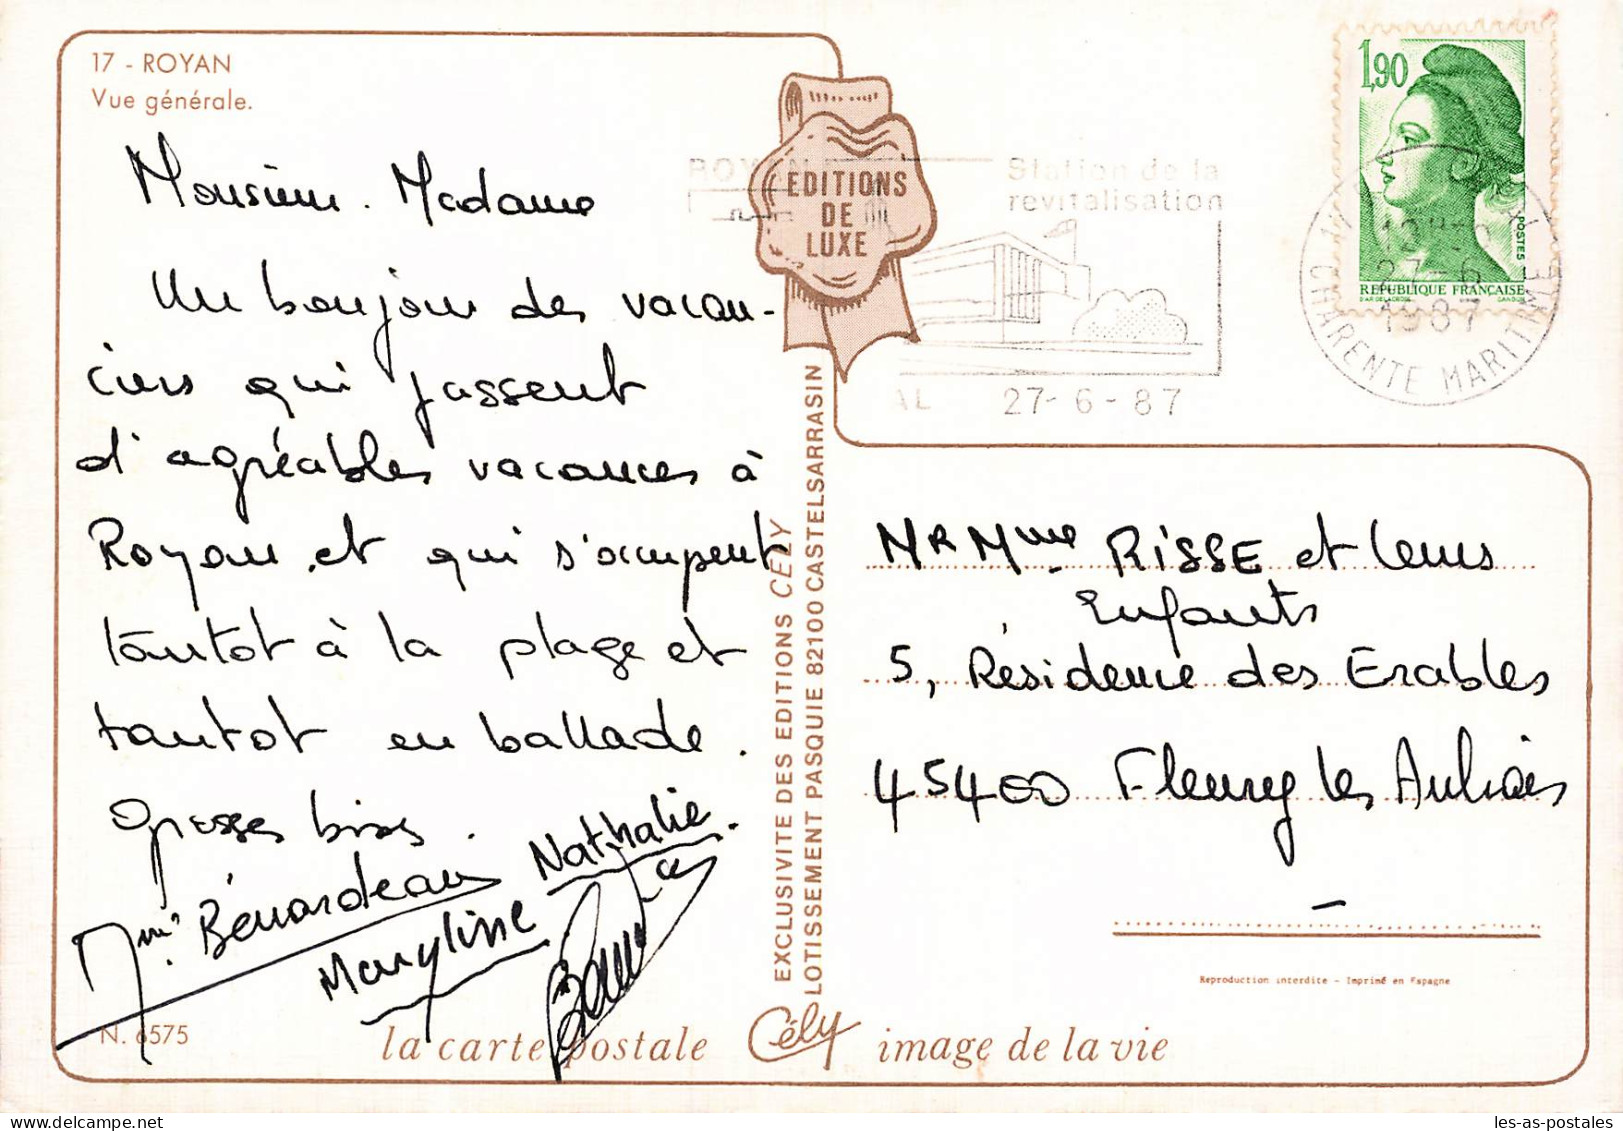 17 - ROYAN
Vue générale.
Monsieur. Madame
Un bonjour des vacan-
ciers qui passent
d'agréables vacances à
Royan et qui s'occupent
tantot à la plage et
tantot en ballade.
Grosses bises.
Mme. Bénardeau
Nathalie.
Maryline
N. 6575
la carte postale
Cély
image de la vie
EXCLUSIVITE DES EDITIONS CÉLY
LOTISSEMENT PASQUIE 82100 CASTELSARRASIN
EDITIONS
DE
LUXE
ROYAN
Station de la
revitalisation
27-6-87
1,90
POSTES
REPUBLIQUE FRANÇAISE
27-6
1987
CHARENTE MARITIME
MR Mme RISSE et leurs
Enfants
5, Résidence des Erables
45400 Fleury les Aubrais
Reproduction interdite - Imprimé en Espagne
les-as-postales